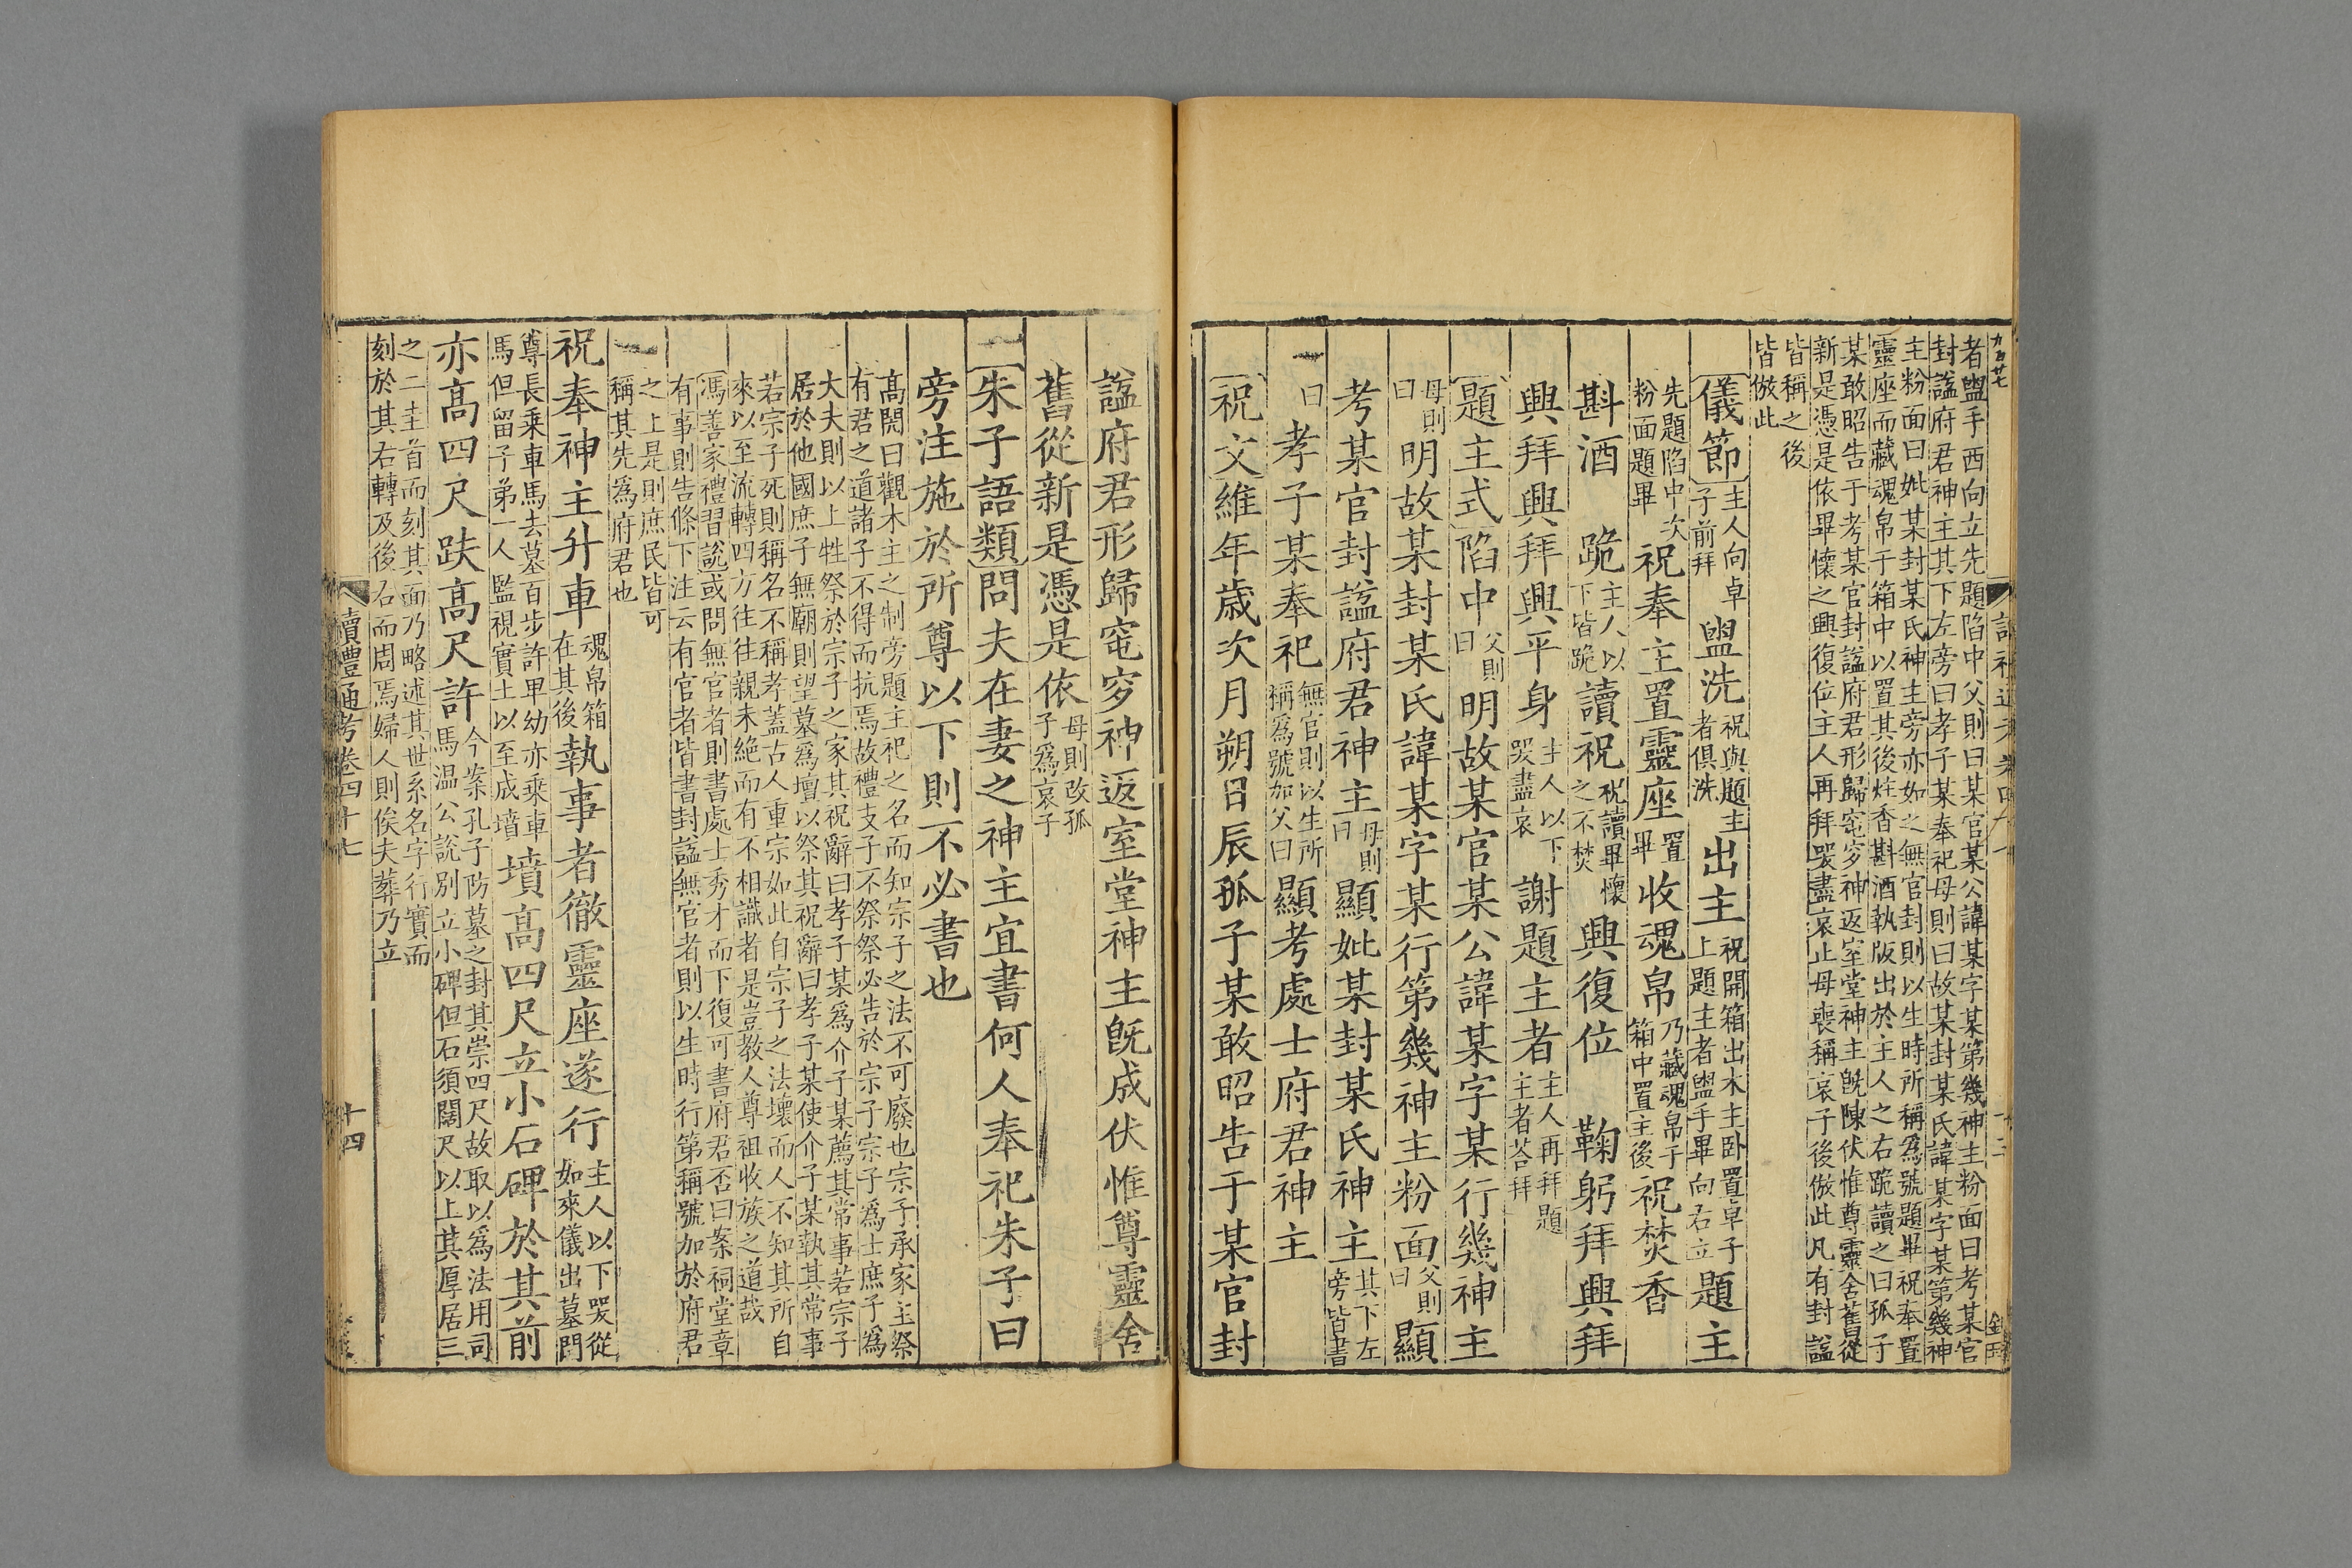 者盥手西向立先題陷中父則曰某官某公諱某字某第幾神主粉面曰考某官
封諡府君神主其下左旁曰孝子某奉祀母則曰故某封某氏諱某字某第幾神
主粉面曰妣某封某氏神主旁亦如之無官封則以生時所稱為號題畢祝奉置
靈座而藏魂帛于箱中以置其後炷香斟酒執版出於主人之右跪讀之曰孤子
某敢昭告于考某官封諡府君形歸窀穸神返室堂神主旣陳伏惟尊靈舍舊從
新是憑是依畢懷之興復位主人再拜哭盡哀止母喪稱哀子後倣此凡有封諡
皆稱之後
皆倣此
儀節主人向卓子前拜 盥洗祝與題主者俱洗 出主祝開箱出木主卧置卓子上題主者盥手畢向右立 題主
先題陷中次粉面題畢 祝奉主置靈座置畢 收魂帛乃藏魂帛于箱中置主後 祝焚香
斟酒 跪主人以下皆跪 讀祝祝讀畢懷之不焚 興復位 鞠躬拜興拜
興拜興興拜興平身主人以下哭盡哀 謝題主者主人再拜題主者荅拜
題主式陷中父則曰明故某官某公諱某字某行幾神主
母則曰明故某封某氏諱某字某行第幾神主粉面父則曰顯
考某官封諡府君神主母則曰顯妣某封某氏神主其下左旁皆書
曰孝子某奉祀無官則以生所稱為號加父曰顯考處士府君神主
祝文維年歲次月朔日辰孤子某敢昭告于某官封
諡府君形歸窀穸神返室堂神主旣成伏惟尊靈舍
舊從新是憑是依母則改孤子爲哀子
朱子語類問夫在妻之神主宜書何人奉祀朱子曰
旁注施於所尊以下則不必書也
高閌曰觀木主之制旁題主祀之名而知宗子之法不可廢也宗子承家主祭
有君之道諸子不得而抗焉故禮支子不祭祭必告於宗子宗子爲士庶子爲
大夫則以上牲祭於宗子之家其祝辭曰孝子某爲介子某薦其常事若宗子
居於他國庶子無廟則望墓爲壇以祭其祝辭曰孝子某使介子某執其常事
若宗子死則稱名不稱孝蓋古人重宗如此自宗子之法壞而人不知其所自
來以至流轉四方往往親未絶而有不相識者是豈教人尊祖收族之道哉
馮善家禮習說或問無官者則書處士秀才而下復可書府君否曰案祠堂章
有事則告條下注云有官者皆書封諡無官者則以生時行第稱號加於府君
之上是則庶民皆可
稱其先爲府君也
祝奉神主升車魂帛箱在其後執事者徹靈座遂行主人以下哭從如來儀出墓門
尊長乘車馬去墓百步許卑幼亦乘車馬但留子弟一人監視實土以至成墳 墳高四尺立小石碑於其前
亦高四尺趺高尺許今案孔子防墓之封其崇四尺故取以爲法用司馬溫公說別立小碑但石須闊尺以上其厚居三
之二圭首而刻其面乃略述其世系名字行實而
刻於其右轉及後左而周焉婦人則俟夫葬乃立
讀禮通考卷四十七
十四